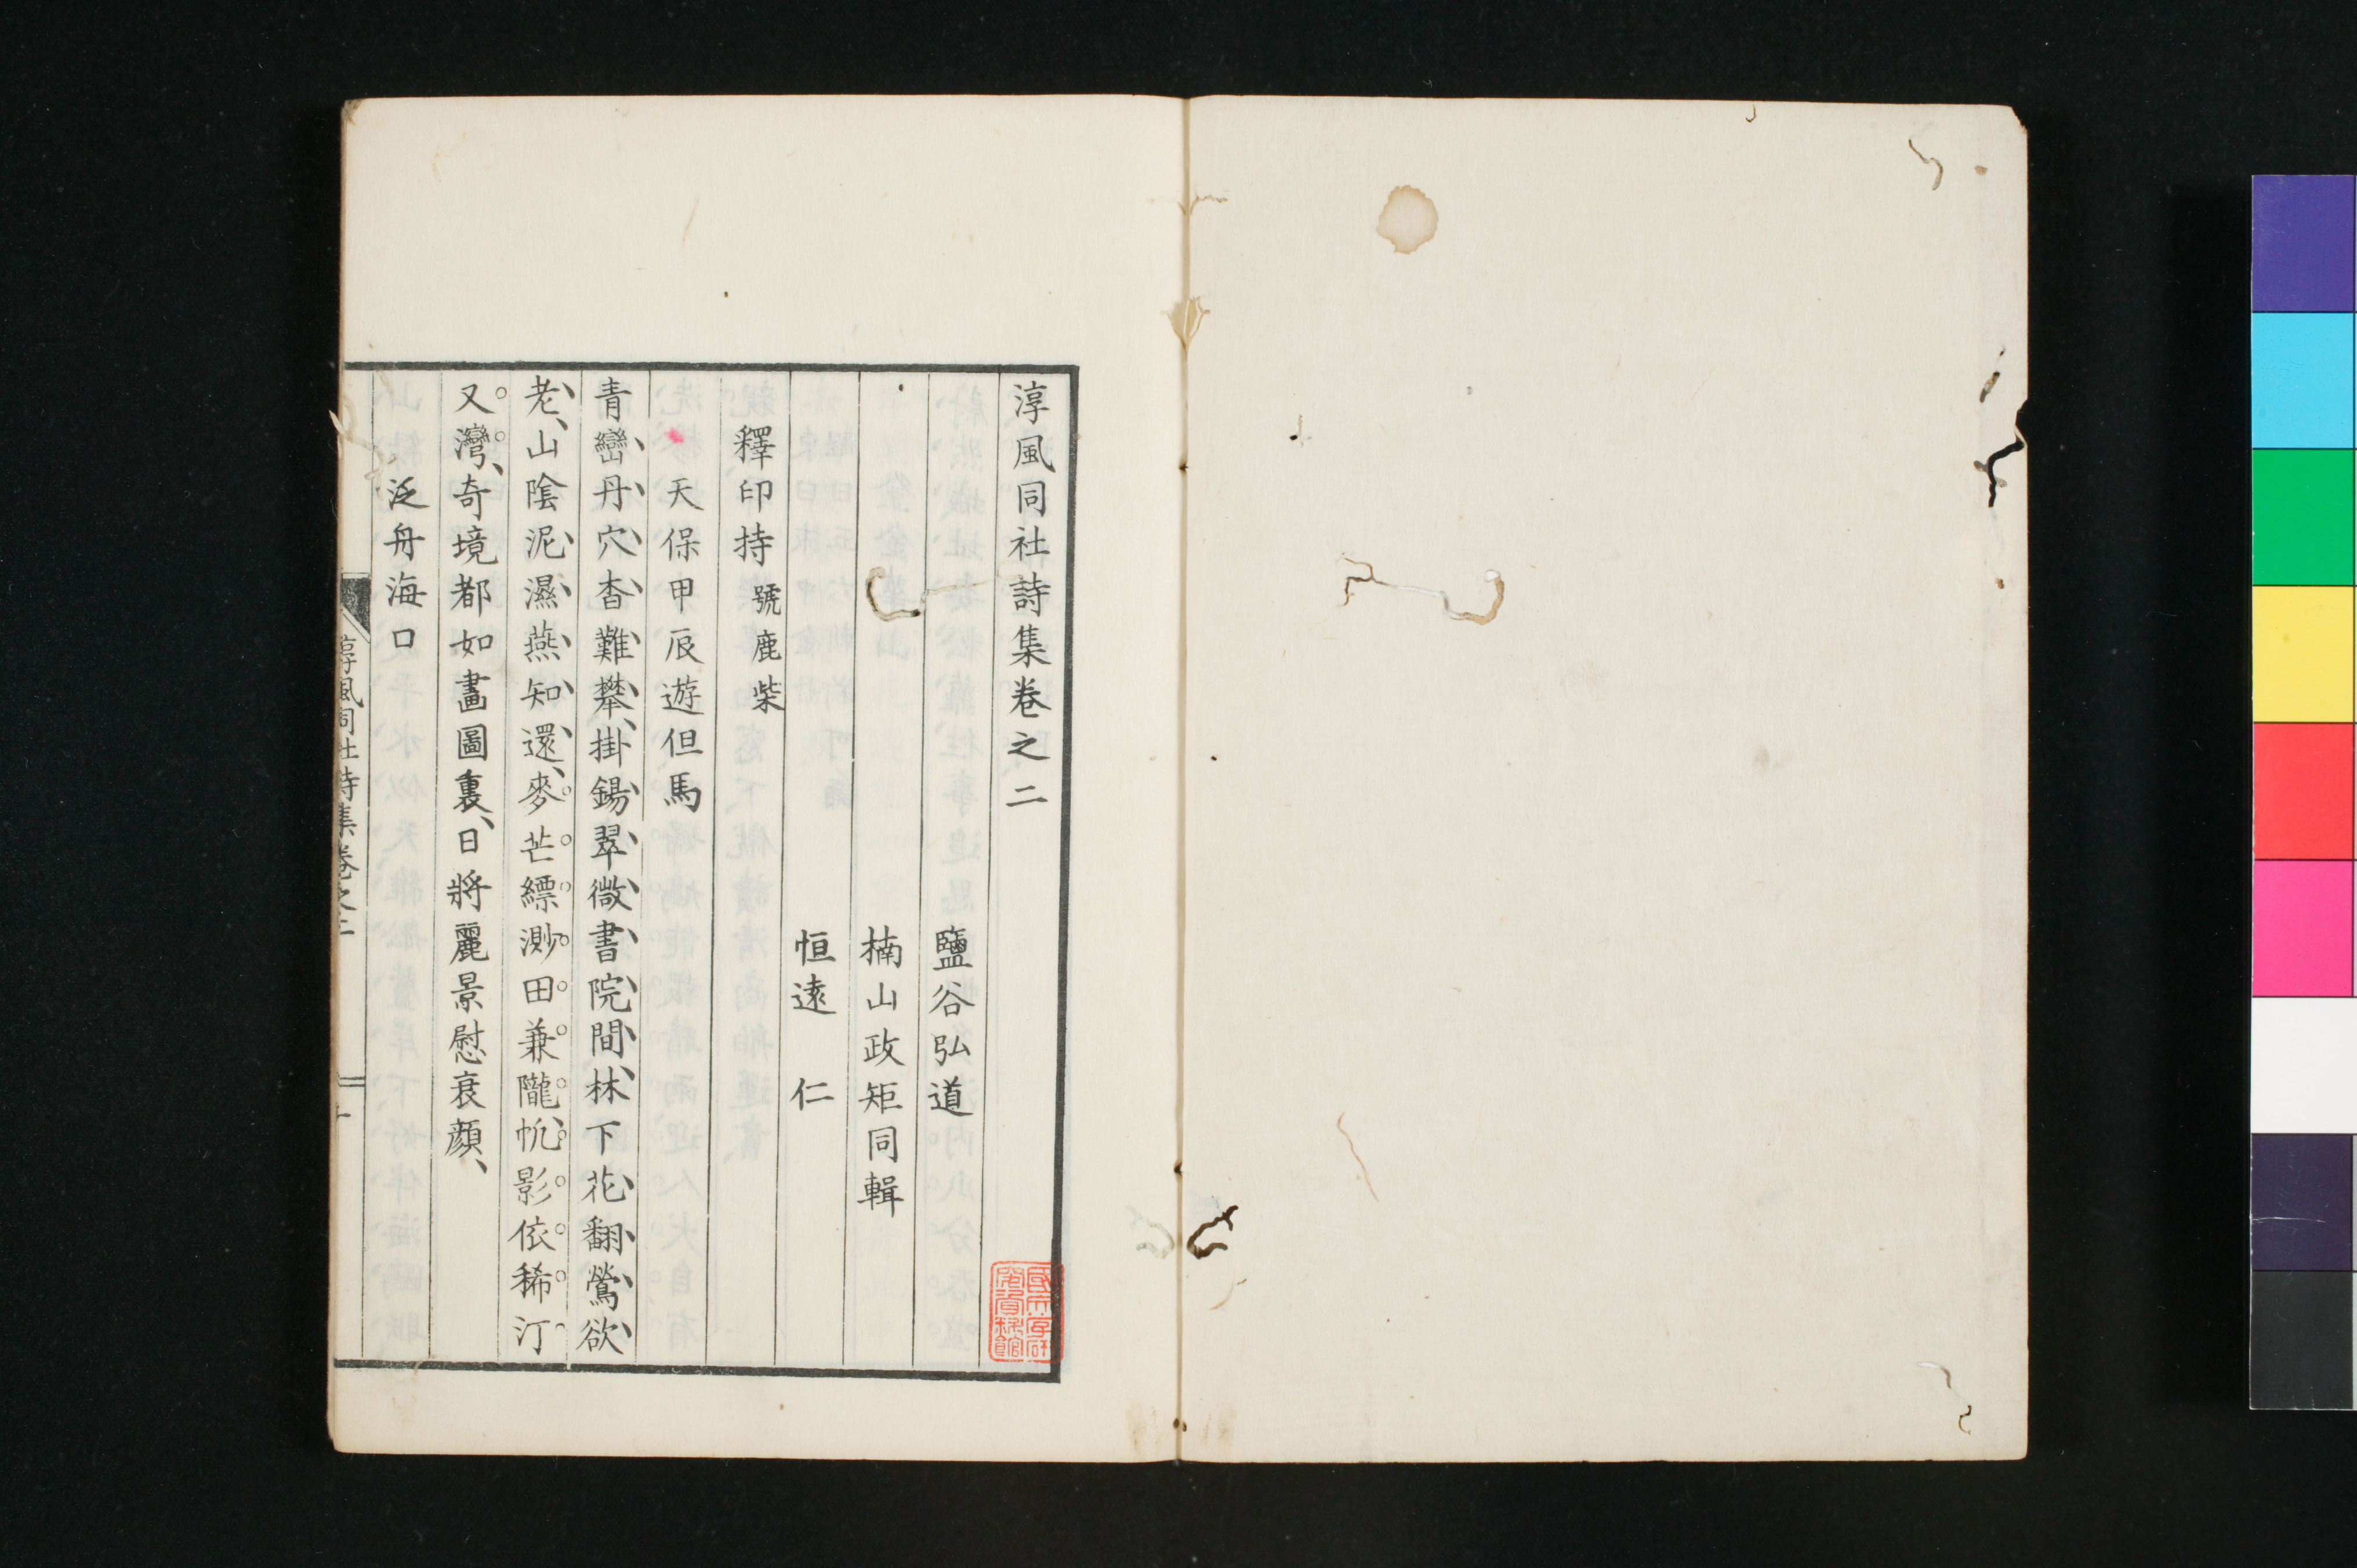 淳風同社詩集卷之二
鹽谷弘道
楠山政矩同輯
恒遠　仁
釋印持 號鹿柴
天保甲辰遊但馬
青巒丹穴杳難攀、掛錫翠微書院間、林下花翻鶯欲
老、山陰泥濕燕知還、麥芒縹渺田兼隴、帆影依稀汀
又灣、奇境都如畵圖裏、日將麗景慰衰顔、
泛舟海口
淳風同社詩集卷之二